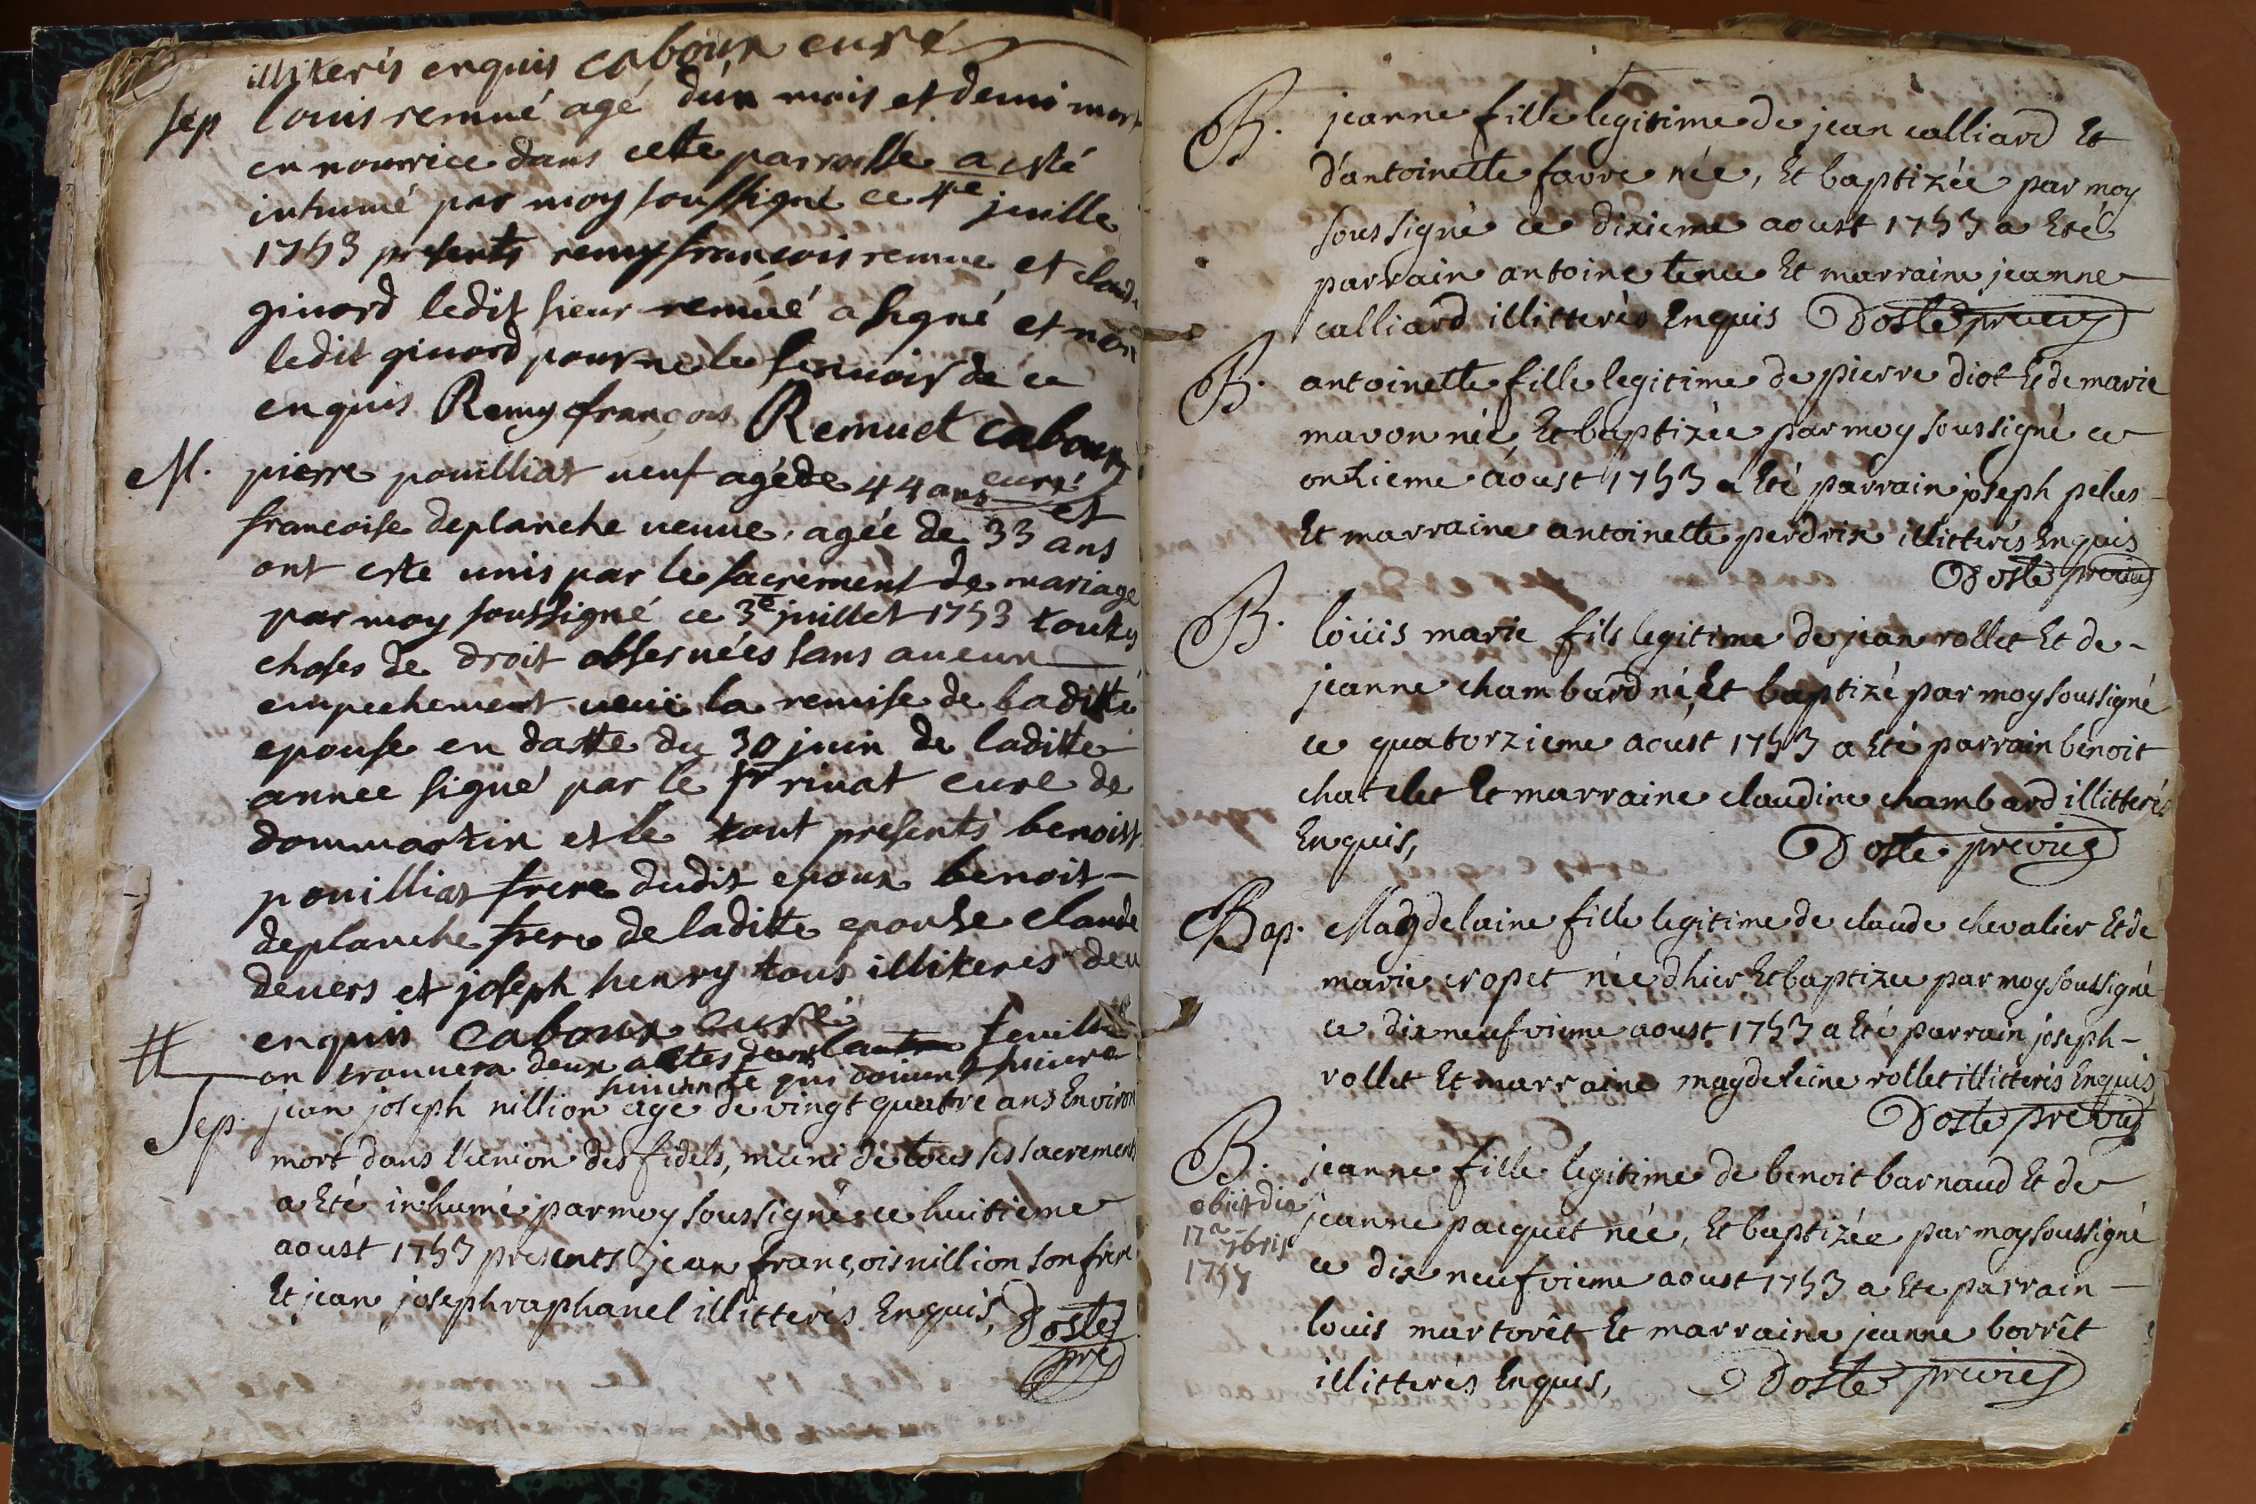 illiterés enquis caboux curé
Sep louis remué agé d'un mois et demi mort
en nourrice dans cette parroisse a esté
inhumé par moy soussigné ce 4e juille
1753 presents remy françois remue et claude
ginord ledit sieur remué a signé et non
ledit ginord pour ne le scavoir de ce
enquis Remy françois Remuet caboux
curé
M. pierre pouilliat veuf agé de 44 ans et
francoise deplanche veuve, agée de 33 ans
ont este unis par le sacrement de mariage
par moy soussigné ce 3e juillet 1753 toutes
choses de droit observées sans aucun
empechement veüe la remise de laditte
epouse en datte du 30 juin de laditte
annee signé par le sr rivat curé de
dommartin et le tout presents benoist
pouilliat frere dudit epoux benoit
deplanche frere de laditte epouse claude
devers et joseph henry tous illiteres de ce
enquis caboux curé
# on trouvera deux actes dans feuille
suivante qui doivent suivre
Sep. jean joseph nillion agé de vingt quatre ans Environ
mort dans l'union des fidels, muni de tous ses sacrements
a Eté inhumé par moy soussigné ce huitieme
aoust 1753 presents jean françois nillion son frere
Et jean joseph raphanel illitterés Enquis, Doste
pre
B. jeanne fille legitime de jean calliard Et
d'antoinette favre née, Et baptizée par moy
soussigné ce dixieme aoust 1753 a Eté
parrain antoine tenu Et marraine jeanne
calliard illitterés Enquis Doste previc
B. antoinette fille legitime de pierre diot Et de marie
mavon née, Et baptizée par moy soussigné ce
onzieme aoust 1753 a Eté parrain joseph pelus
Et marraine antoinette perdrix illitterés Enquis
Doste previc
B. loüis marie fils legitime de jean rollet Et de
jeanne chambard né, Et baptizé par moy soussigné
ce quatorzieme aoust 1753 a Eté parrain benoit
chatelet Et marraine claudine chambard illitterés
Enquis, Doste previc
Bap. Magdelaine fille legitime de claude chevalier Et de
marie cropet née d'hier Et baptizee par moy soussigné
ce dix neufvieme aoust 1753 a Eté parrain joseph
rollet Et marraine magdeleine rollet illitterés Enquis
Doste previc
B. jeanne fille legitime de benoit barnaud Et de
obiit die
jeanne pacquet née, Et baptizée par moy soussigné
17a 7bris
ce dix neufvieme aoust 1753 a Ete parrain
1754
louis martorêt Et marraine jeanne borrêt
illitterés Enquis, Doste previc